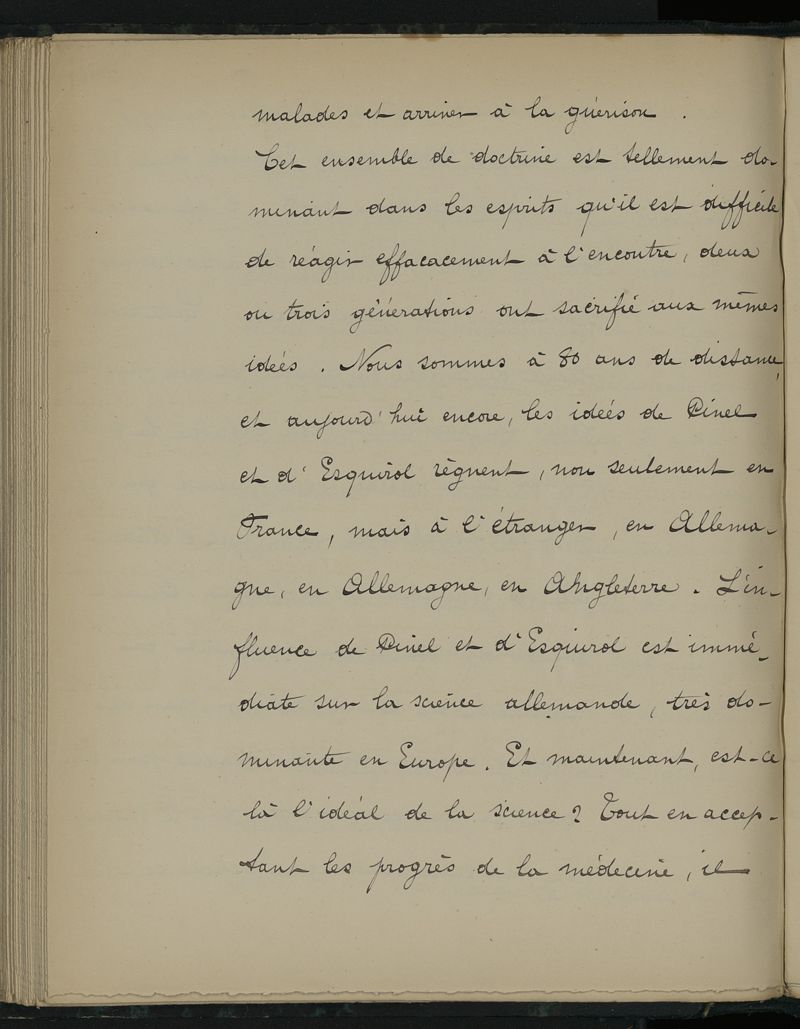 malades et arriver à la guérison .
Cet ensemble de doctrine est tellement do-
minant dans les esprits qu'il est difficile
de réagir effacacement à l'encontre, deux
ou trois générations ont sacrifié aux mêmes
idées . Nous sommes à 80 ans de distance,
et aujourd'hui encore, les idées de Pinel
et d'Esquirol règnent, non seulement en
France, mais à l'étranger, en Allema-
gne, en Allemagne, en Angleterre . L'in-
fluence de Pinel et d'Esquirol est immé-
diate sur la science allemande, très do-
minante en Europe . Et maintenant, est-ce
là l'idéal de la science ? Tout en accep-
tant les progrès de la médecine, il